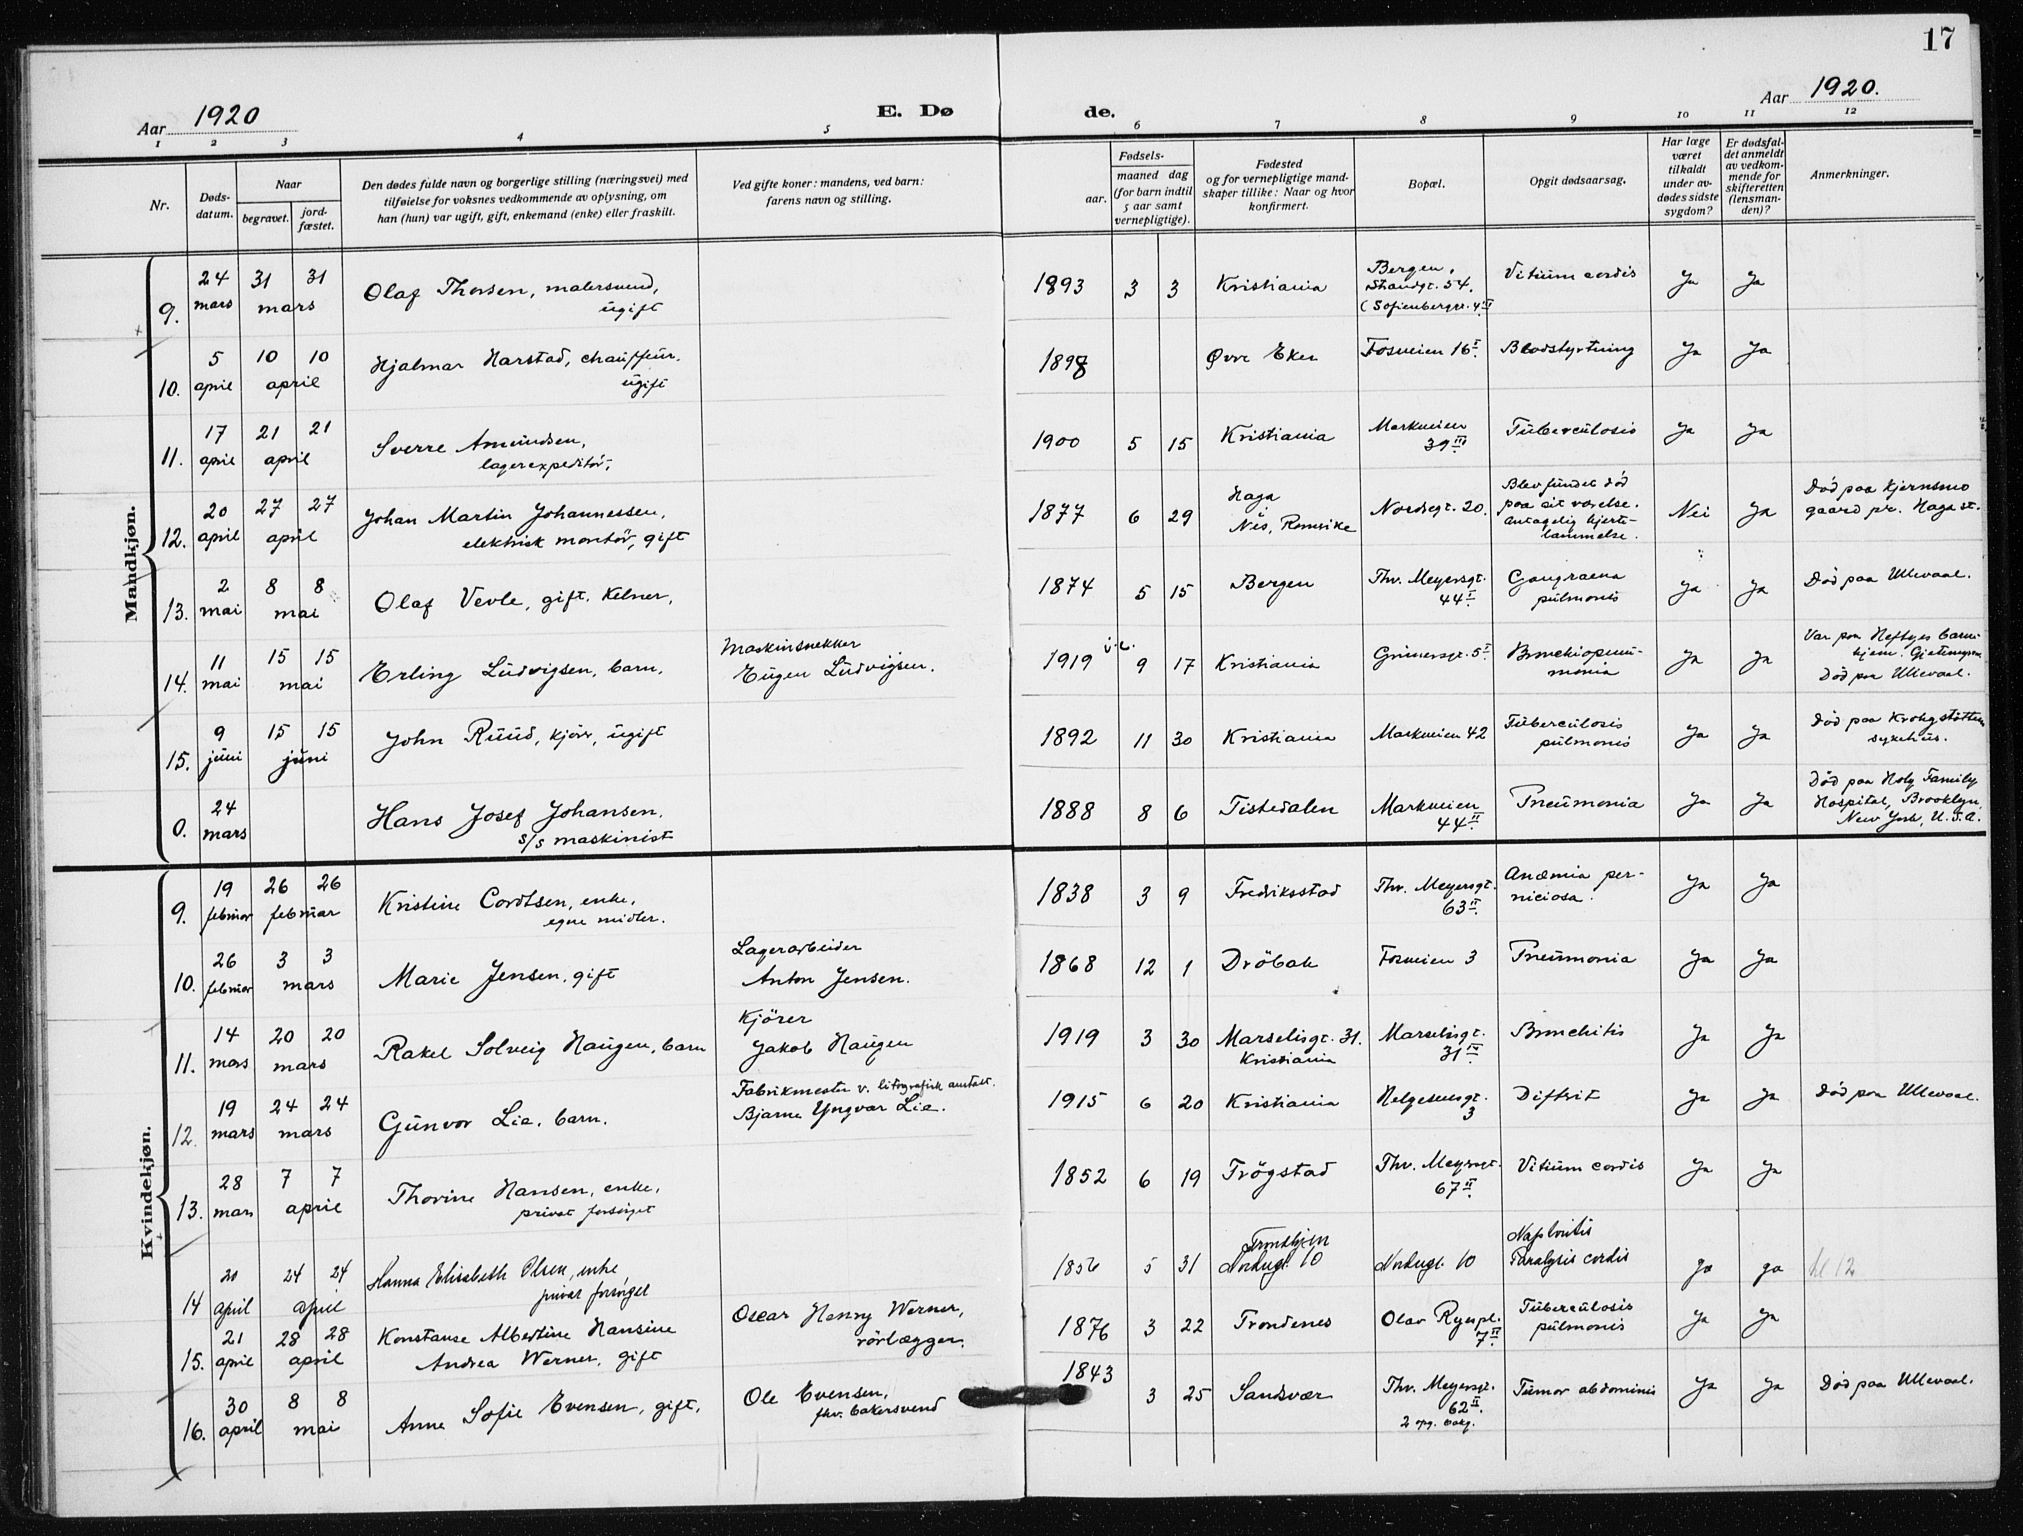 17
Aar 1920
E. Dø de.
Aar 1920.
1 2 3 4 5 6 7 8 9 10 11 12
Nr.
Døds-
datum.
Naar
begravet.
jord-
fæstet.
Den dødes fulde navn og borgerlige stilling (næringsvei) med
tilføielse for voksnes vedkommende av oplysning, om
han (hun) var ugift, gift, enkemand (enke) eller fraskilt.
Ved gifte koner: mandens, ved barn:
farens navn og stilling.
Fødsels-
aar.
maaned dag
(for barn indtil
5 aar samt
vernepligtige).
Fødested
og for vernepligtige mand-
skaper tillike: Naar og hvor
konfirmert.
Bopæl.
Opgit dødsaarsag.
Har læge
været
tilkaldt
under av-
dødes sidste
sygdom?
Er dødsfal-
det anmeldt
av vedkom-
mende for
skifteretten
(lensman-
den)?
Anmerkninger.
Mandkjøn.
9. 24 mars 31 31 mars
Olaf Thorsen, malersvend,
ugift
1893 3 3 Kristiania
Bergen,
Strandgt. 54.
(Sofienberggt. 4 II
Vitium cordis Ja Ja
10. 5 april 10 10 april
Hjalmar Harstad, chauffeur.
ugift
1898 Øvre Eker Fosveien 16 I. Blodstyrtning Ja Ja
11. 17 april 21 21 april
Sverre Amundsen,
lagerexpeditör,
1900 5 15 Kristiania
Markveien
39 III.
Tuberculosis Ja Ja
12. 20 april 27 27 april
Johan Martin Johannessen,
elektrisk montör, gift
1877 6 29
Haga
Nes, Romerike
Nordregt. 20.
Blev fundet död
paa sit værelse.
antagelig hjerte-
lammelse.
Nei Ja
Död paa Kjernsmo
gaard pr. Haga st.
13. 2 mai 8 8 mai
Olaf Vevle, gift. Kelner,
1874 5 15 Bergen
Thv. Meyersgt.
44 I.
Gangraena
pulmonis
Ja Ja
Död paa Ullevaal.
14. 11 mai 15 15 mai
Erling Ludvigsen, barn.
Maskinsnekker
Eugen Ludvigsen.
1919 9 17 Kristiania Grünersgt. 5 I.
Bronchiopneu-
monia
Ja Ja
Var paa Heftyes barne-
hjem. Gjettmyren.
Död paa Ullevaal.
15. 9 juni 15 15 juni
John Ruud, kjörer, ugift
1892 11 30 Kristiania Markveien 42
Tuberculosis
pulmonis
Ja Ja
Död paa Krohgstötten
sykehus.
0. 24 mars
Hans Josef Johansen.
s/s maskinist
1888 8 6 Tistedalen
Markveien
44 II.
Pneumonia Ja Ja
Död paa Holy Family
Hospital, Brooklyn,
New York, U.S.A.
Kvindekjøn.
9. 19 februar 26 26 februar
Kristine Cordtsen, enke,
egne midler.
1838 3 9 Fredriksstad
Thv. Meyersgt.
63 II.
Anæmia per-
niciosa.
Ja Ja
10. 26 februar 3 3 mars
Marie Jensen, gift
Lagerarbeider
Anton Jensen.
1868 12 1 Dröbak Fosveien 3 Pneumonia Ja Ja
11. 14 mars 20 20 mars
Rakel Solveig Haugen, barn
Kjörer
Jakob Haugen
1919 3 30
Marselisgt. 31.
Kristiania
Marselisgt.
31 IV.
Bronchitis Ja Ja
12. 19 mars 24 24 mars
Gunvor Lie, barn.
Fabrikmester v. litografisk anstalt.
Bjarne Yngvar Lie.
1915 6 20 Kristiania
Helgesensgt.
3
Difterit Ja Ja
Död paa Ullevaal.
13. 28 mars 7 7 april
Thorine Hansen, enke,
privat forsörget
1852 6 19 Trögstad
Thv. Meyersgt.
67 II.
Vitium cordis Ja Ja
14 20 april 24 24 april
Hanna Elisabeth Olsen, enke
privat forsörget
1856 5 31
Trondhjem
Nordregt. 10
Nordregt. 10
Paralysis cordis
ja ja
kl 12
15. 21 april 28 28 april
Konstanse Albertine Hansine
Andrea Werner, gift
Oscar Henry Werner,
rörlægger.
1876 3 22 Trondenes
Olav Ryespl.
7 II.
Tuberculosis
pulmonis
Ja Ja
16. 30 april 8 8 mai
Anne Sofie Evensen, gift,
Ole Evensen,
fhv. bakersvend
1843 3 25 Sandsvær
Thv. Meyersgt.
62 II.
2 opg. bakg.
Tumor abdominis Ja Ja
Död paa Ullevaal.